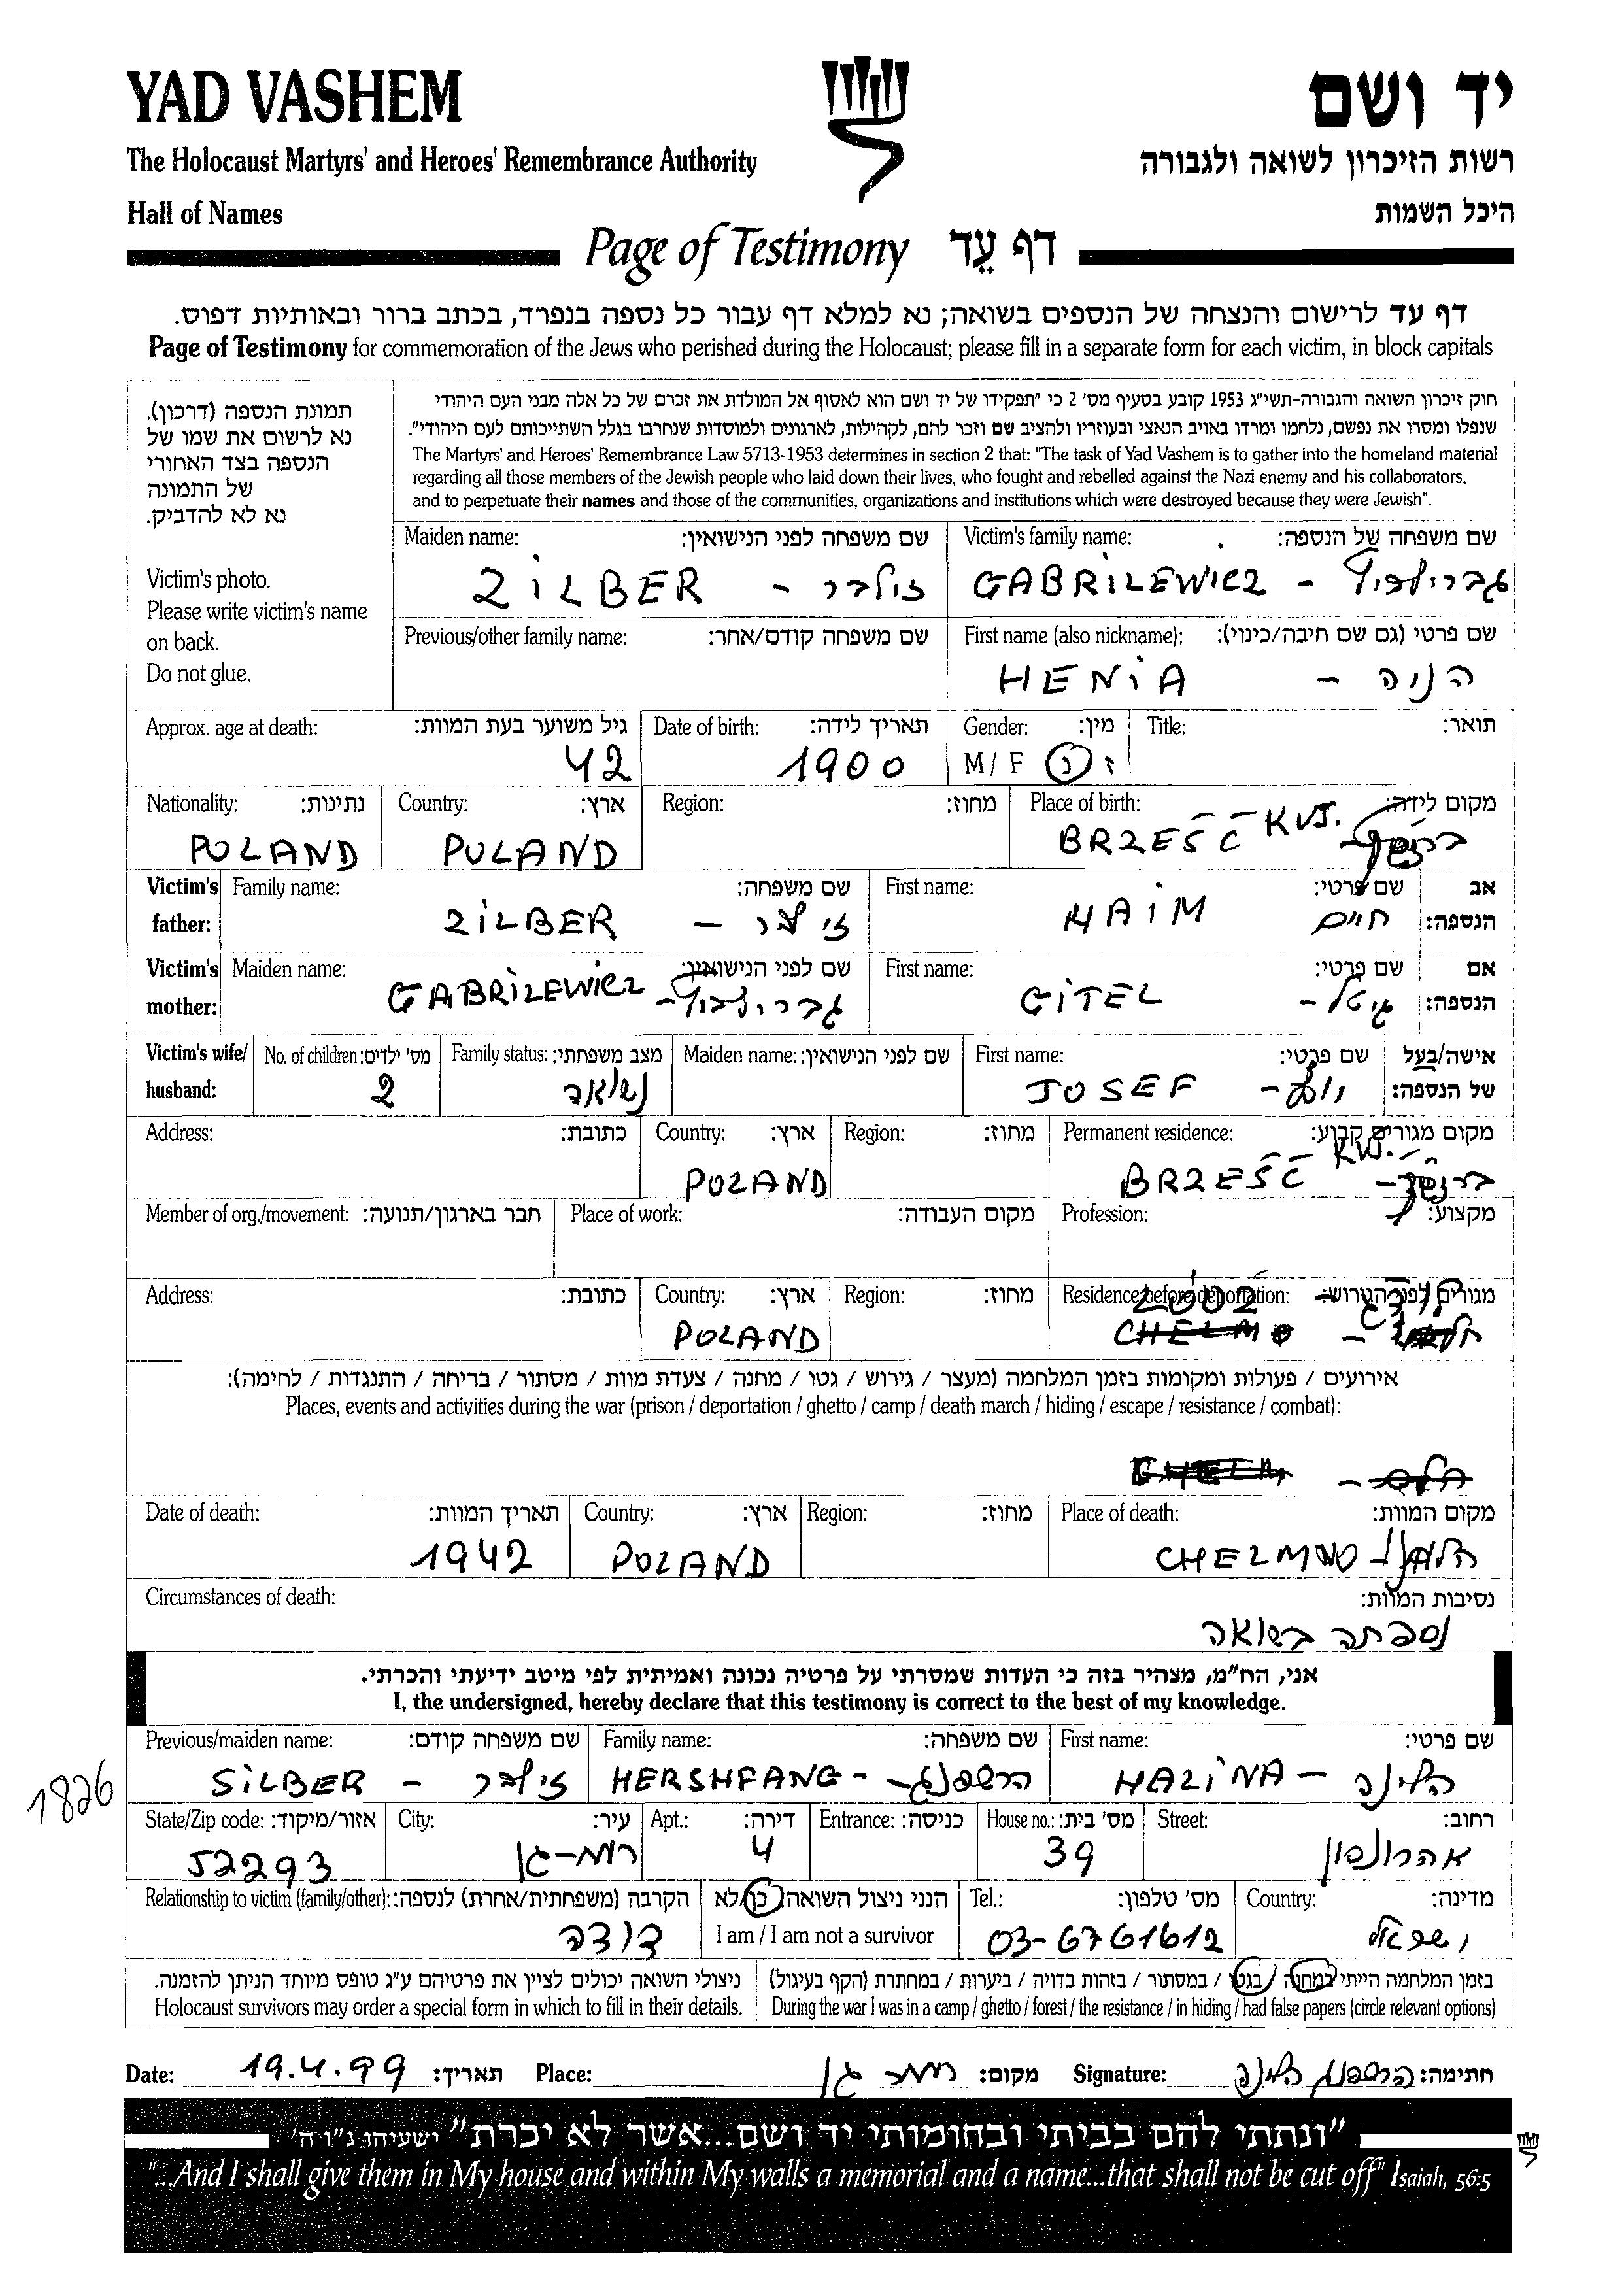 YAD VASHEM
יד ושם
The Holocaust Martyrs' and Heroes' Remembrance Authority
רשות הזיכרון לשואה ולגבורה
Hall of Names
היכל השמות
Page of Testimony דף עֵד
דף עד לרישום והנצחה של הנספים בשואה; נא למלא דף עבור כל נספה בנפרד, בכתב ברור ובאותיות דפוס.
Page of Testimony for commemoration of the Jews who perished during the Holocaust; please fill in a separate form for each victim, in block capitals
תמונת הנספה (דרכון).
נא לרשום את שמו של
הנספה בצד האחורי
של התמונה
נא לא להדביק.
Victim's photo.
Please write victim's name
on back.
Do not glue.
חוק זיכרון השואה והגבורה-תשי"ג 1953 קובע בסעיף מס' 2 כי "תפקידו של יד ושם הוא לאסוף אל המולדת את זכרם של כל אלה מבני העם היהודי
שנפלו ומסרו את נפשם, נלחמו ומרדו באויב הנאצי ובעוזריו ולהציב שם וזכר להם, לקהילות, לארגונים ולמוסדות שנחרבו בגלל השתייכותם לעם היהודי".
The Martyrs' and Heroes' Remembrance Law 5713-1953 determines in section 2 that: "The task of Yad Vashem is to gather into the homeland material
regarding all those members of the Jewish people who laid down their lives, who fought and rebelled against the Nazi enemy and his collaborators,
and to perpetuate their names and those of the communities, organizations and institutions which were destroyed because they were Jewish".
Maiden name: שם משפחה לפני הנישואין: Victim's family name: שם משפחה של הנספה:
ZILBER - זילבר GABRILEWICZ - גברילביץ
Previous/other family name: שם משפחה קודם/אחר: First name (also nickname): שם פרטי (גם שם חיבה/כינוי):
HENIA - הניה
Approx. age at death: גיל משוער בעת המוות: Date of birth: תאריך לידה: Gender: מין: Title: תואר:
42 1900 M / F ז נ
Nationality: נתינות: Country: ארץ: Region: מחוז: Place of birth: מקום לידה:
POLAND POLAND BRZEŚĆ KUJ.
Victim's father: Family name: שם משפחה: First name: שם פרטי: אב הנספה:
ZILBER - זילבר HAIM חיים
Victim's mother: Maiden name: שם לפני הנישואין: First name: שם פרטי: אם הנספה:
GABRILEWICZ - גברילביץ GITEL - גיטל
Victim's wife/ husband: No. of children: מס' ילדים: Family status: מצב משפחתי: Maiden name: שם לפני הנישואין: First name: שם פרטי: אישה/בעל של הנספה:
2 נשואה JOSEF - יוסף
Address: כתובת: Country: ארץ: Region: מחוז: Permanent residence: מקום מגורים קבוע:
POLAND BRZEŚĆ KUJ.
Member of org./movement: חבר בארגון/תנועה: Place of work: מקום העבודה: Profession: מקצוע:
Address: כתובת: Country: ארץ: Region: מחוז: Residence before deportation: מגורים לפני הגירוש:
POLAND ŁÓDŹ - לודז
אירועים / פעולות ומקומות בזמן המלחמה (מעצר / גירוש / גטו / מחנה / צעדת מוות / מסתור / בריחה / התנגדות / לחימה):
Places, events and activities during the war (prison / deportation / ghetto / camp / death march / hiding / escape / resistance / combat):
Date of death: תאריך המוות: Country: ארץ: Region: מחוז: Place of death: מקום המוות:
1942 POLAND CHELMNO - חלמנו
Circumstances of death: נסיבות המוות:
נספתה בשואה
אני, הח"מ, מצהיר בזה כי העדות שמסרתי על פרטיה נכונה ואמיתית לפי מיטב ידיעתי והכרתי.
I, the undersigned, hereby declare that this testimony is correct to the best of my knowledge.
Previous/maiden name: שם משפחה קודם: Family name: שם משפחה: First name: שם פרטי:
1826 SILBER - זילבר HERSHFANG - הרשפנג HALINA - הלינה
State/Zip code: אזור/מיקוד: City: עיר: Apt.: דירה: Entrance: כניסה: House no.: מס' בית: Street: רחוב:
52293 רמת-גן 4 39 אהרונסון
Relationship to victim (family/other): הקרבה (משפחתית/אחרת) לנספה: הנני ניצול השואה: כן/לא Tel.: מס' טלפון: Country: מדינה:
דודה I am / I am not a survivor 03-6761612 ישראל
ניצולי השואה יכולים לציין את פרטיהם ע"ג טופס מיוחד הניתן להזמנה. בזמן המלחמה הייתי במחנה / בגטו / במסתור / בזהות בדויה / ביערות / במחתרת (הקף בעיגול)
Holocaust survivors may order a special form in which to fill in their details. During the war I was in a camp / ghetto / forest / the resistance / in hiding / had false papers (circle relevant options)
Date: 19.4.99 תאריך: Place: רמת גן מקום: Signature: הרשפנג הלינה חתימה:
"ונתתי להם בביתי ובחומותי יד ושם...אשר לא יכרת" ישעיהו נ"ו ה'
"...And I shall give them in My house and within My walls a memorial and a name...that shall not be cut off" Isaiah, 56:5